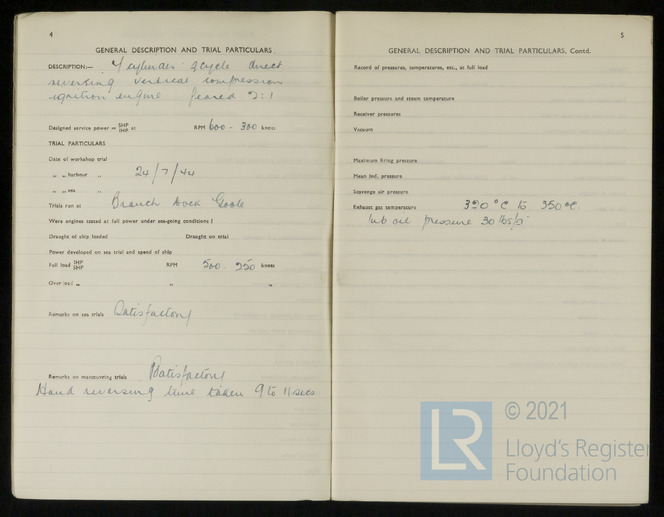 4
GENERAL DESCRIPTION AND TRIAL PARTICULARS
DESCRIPTION:— 7 cylinder 4 cycle direct
reversing vertical compression
ignition engine geared 2:1
Designed service power = SHP IHP at RPM 600 - 300 knots
TRIAL PARTICULARS
Date of workshop trial
" " harbour " 24/7/44
" " sea "
Trials run at Branch Dock Goole
Were engines tested at full power under sea-going conditions?
Draught of ship loaded Draught on trial
Power developed on sea trial and speed of ship
Full load IHP SHP RPM 500 - 250 knots
Over load " " "
Remarks on sea trials Satisfactory
Remarks on manœuvring trials Satisfactory
Hand reversing time taken 9 to 11 secs
5
GENERAL DESCRIPTION AND TRIAL PARTICULARS, Contd.
Record of pressures, temperatures, etc., at full load
Boiler pressure and steam temperature
Receiver pressures
Vacuum
Maximum firing pressure
Mean ind. pressure
Scavenge air pressure
Exhaust gas temperature 320 °C to 350 °C
lub oil pressure 30 lbs/
LR
© 2021
Lloyd's Register
Foundation